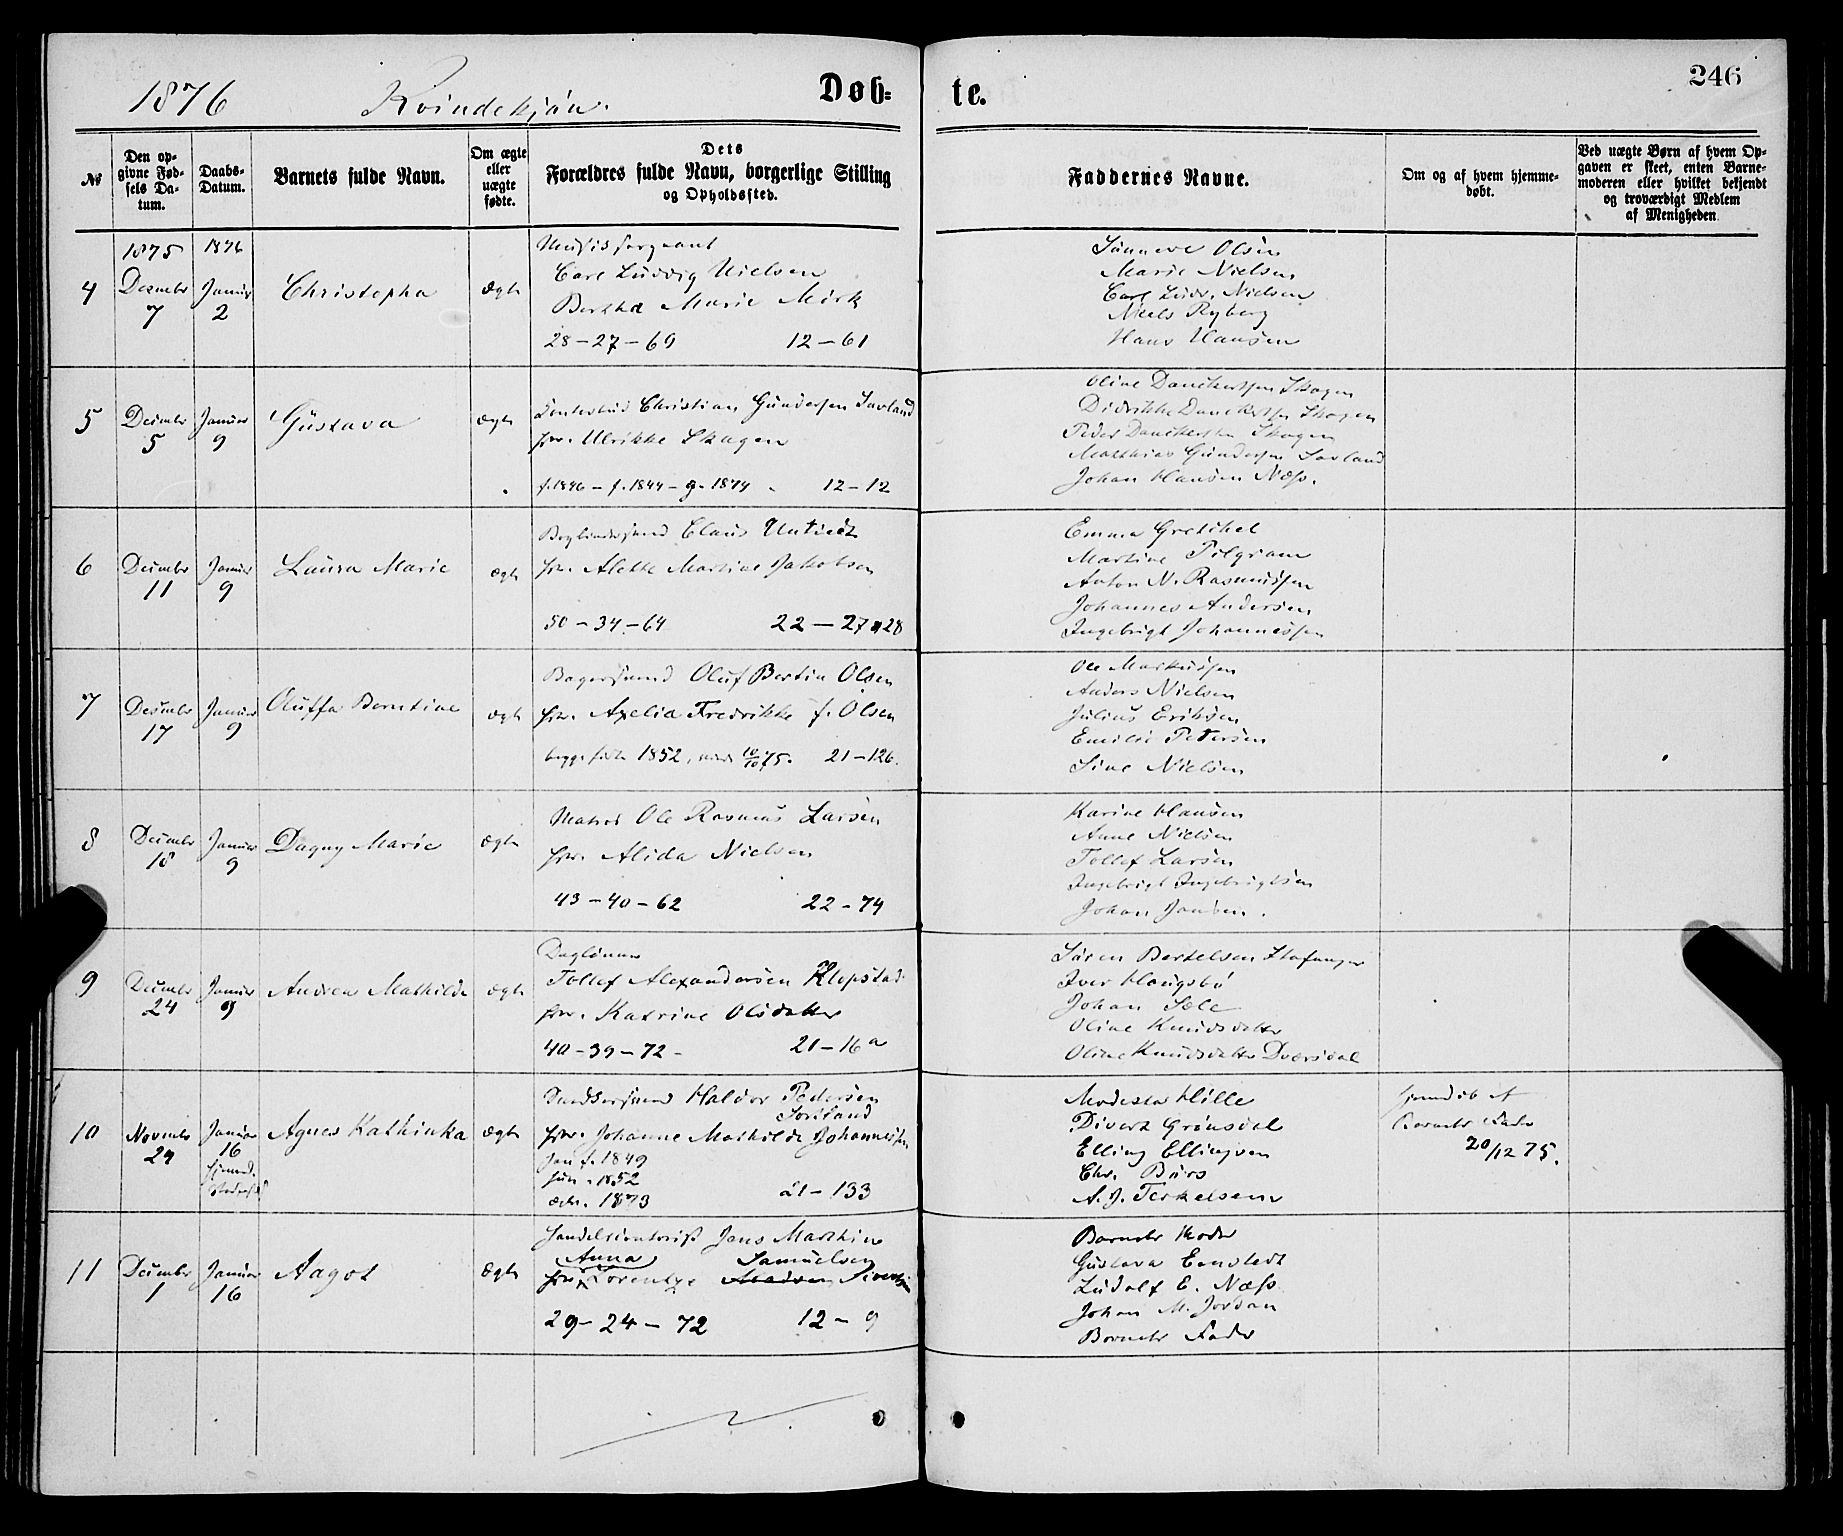 1876 Kvindekjøn. Døb-
te. 246
No
Den op-
givne Fød-
sels Da-
tum.
Daabs-
Datum.
Barnets fulde Navn.
Om ægte
eller
uægte
fødte.
Dets
Forældres fulde Navn, borgerlige Stilling
og Opholdssted.
Faddernes Navne.
Om og af hvem hjemme-
døbt.
Ved uægte Børn af hvem Op-
gaven er skeet, enten Barne-
moderen eller hvilket bekjendt
og troværdigt Medlem
af Menigheden
4
1875
Decmbr
7
1876
Januar
2
Christopha
Ægte
Carl Ludvig Nielsen
Bertha Marie Mirk
28-27-69 12-61
Sunneve Olsen
Marie Nielsen
Carl Ludv. Nielsen
Niels Ryberg
Hans Hansen
5
Decmbr
5
Januar
9
Gustava
ægte
Christian Gundersen Savland
hu. Ulrikke Skagen
f. 1846 - f. 1844 - g. 1874 12-12
Oline Danckertsen Skagen
Didrikke Danckertsen Skagen
Peder Danckertsen Skagen
Matthias Gundersen Savland
Johan Hansen Næss.
6
Decmbr
11
Januar
9
Laura Marie
ægte
Claus Untiedt
hu. Alette Martine Jakobsen
50-34-64 22-27 a 28
Emma Gretchel
Martine Pilgram
Anton N. Rasmussen
Johannes Andersen
Ingebrigt Johannessen
7
Decmbr
17
Januar
9
Oluffa Berntine
ægte
Bagersvend Oluf Bertin Olsen
hu. Axelia Fredrikke f. Olsen
begge fødte 1852, viede 10/10 75. 21-126.
Ole Markussen
Anders Nielsen
Julius Eriksen
Emilie Petersen
Sine Nielsen
8
Decmbr
18
Januar
9
Dagny Marie
ægte
Matros Ole Rasmus Larsen
hu. Alida Nielsen
43-40-62 22-74
Karine Hansen
Anne Nielsen
Tollef Larsen
Ingebrigt Ingebrigtsen
Johan Jansen.
9
Decmbr
24
Januar
9
Andrea Mathilde
ægte
Daglønner
Tollef Alexandersen Klopstad
hu. Katrine Olsdatter
40-39-72- 21-16 a
Søren Bertelsen Stafanger
Iver Haugsbø
Johan Sæle
Oline Knudsdatter
Oline Knudsdatter Dversdal
10
Novmbr
24
Januar
16
Agnes Kathinka
ægte
Haldor Pedersen
hu. Johanne Mathilde Johannessen
han f. 1849
hun - 1852
ægtev. 1873 21-133
Modesta Hille
Divert Grønsdal
Elling Ellingsen
Chr. Börs
A. J. Terkelsen
hjemdøb af
Barnets Fader
20/12 75.
11
Decmbr
1
Januar
16
Aagot
Ægte
Jens Marthin
Anna Samuelsen
hu. Lorentze Madsen Sivertsen
29-24-72 12-9
Barnets Moder
Gustava Eenstedt
Ludolf E. Næss
Johan M. Jordan
Barnets Fader